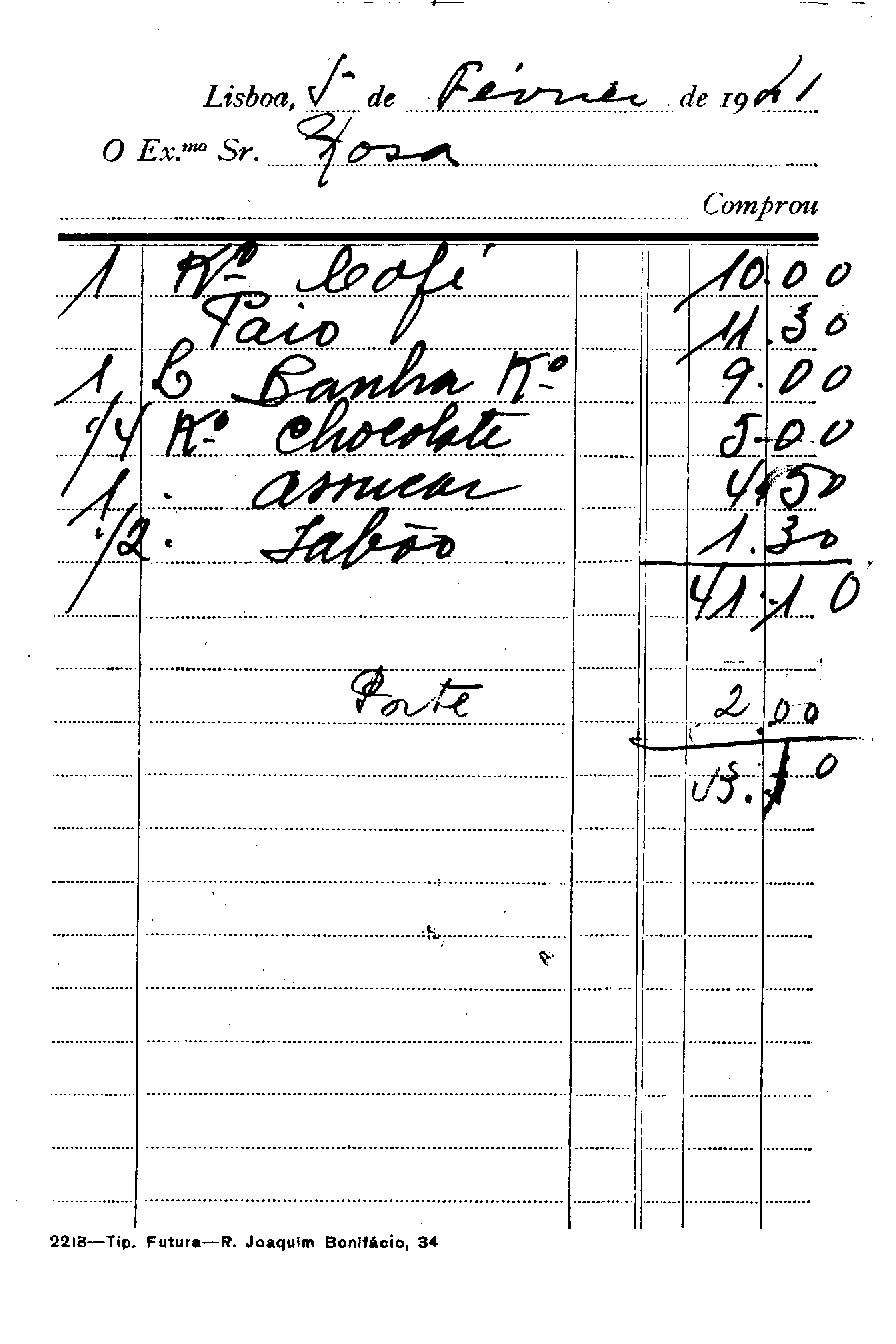 Lisboa, 5 de Février de 1941
O Ex.mo Sr. Rosa
Comprou
1 Kº Café 10.00
Paio 11.30
1 L Banha Kº 9.00
1/4 Kº Chocolate 5-00
1 . Assucar 4.50
1/2 . Sabão 1.30
41.10
Porte 2.00
43.10
2213—Tip. Futura—R. Joaquim Bonifácio, 34